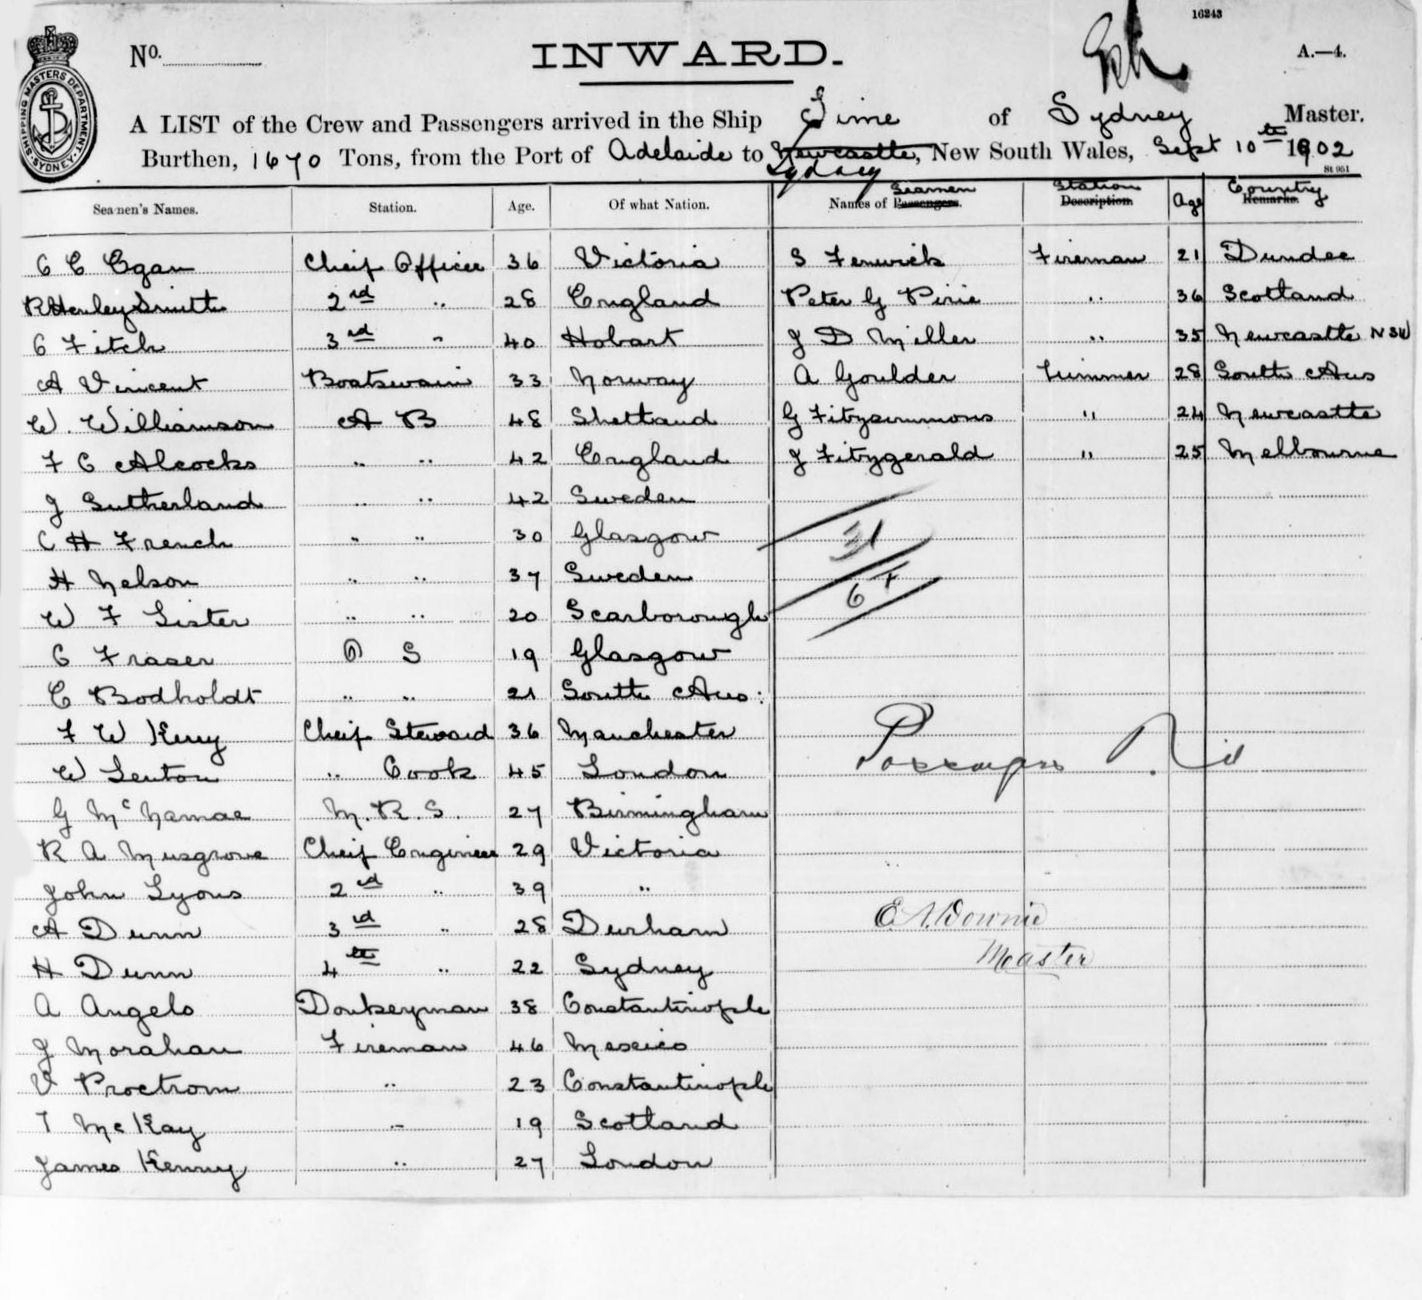 16243
No. INWARD. A.—4.
SHIPPING MASTERS DEPARTMENT SYDNEY
A LIST of the Crew and Passengers arrived in the Ship Time of Sydney Master.
Burthen, 1670 Tons, from the Port of Adelaide to Newcastle, New South Wales, Sept 10th 1902
Sydney
St 951
Seamen's Names. Station. Age. Of what Nation. Names of Passengers. Seamen Description. Station Age Remarks. Country
C Egan Cheif Officer 36 Victoria S Fenwick Fireman 21 Dundee
R Henley Smith 2nd " 28 England Peter G Pirie " 36 Scotland
G Fitch 3rd " 40 Hobart J D Miller " 35 Newcastle NSW
A Vincent Boatswain 33 Norway A Goulder Trimmer 28 South Aus
W. Williamson A B 48 Shetland G Fitzsimmons " 24 Newcastle
F C Alcocks " " 42 England J Fitzgerald " 25 Melbourne
J Sutherland " " 42 Sweden
C H French " " 30 Glasgow
31
H Nelson " " 37 Sweden
6
W F Lister " " 20 Scarborough
G Fraser O S 19 Glasgow
C Bodholdt " " 21 South Aus:
F W Kerry Cheif Steward 36 Manchester
W Lenton " Cook 45 London
Passengers Nil
G McNamae M.R.S. 27 Birmingham
R A Musgrove Cheif Engineer 29 Victoria
John Lyons 2nd " 39 "
A Dunn 3rd " 28 Durham
E. A. Downie
H Dunn 4th " 22 Sydney
Master
A Angelo Donkeyman 38 Constantinople
J Morahan Fireman 46 Mexico
V Proctrom " 23 Constantinople
T McKay " 19 Scotland
James Kenny " 27 London